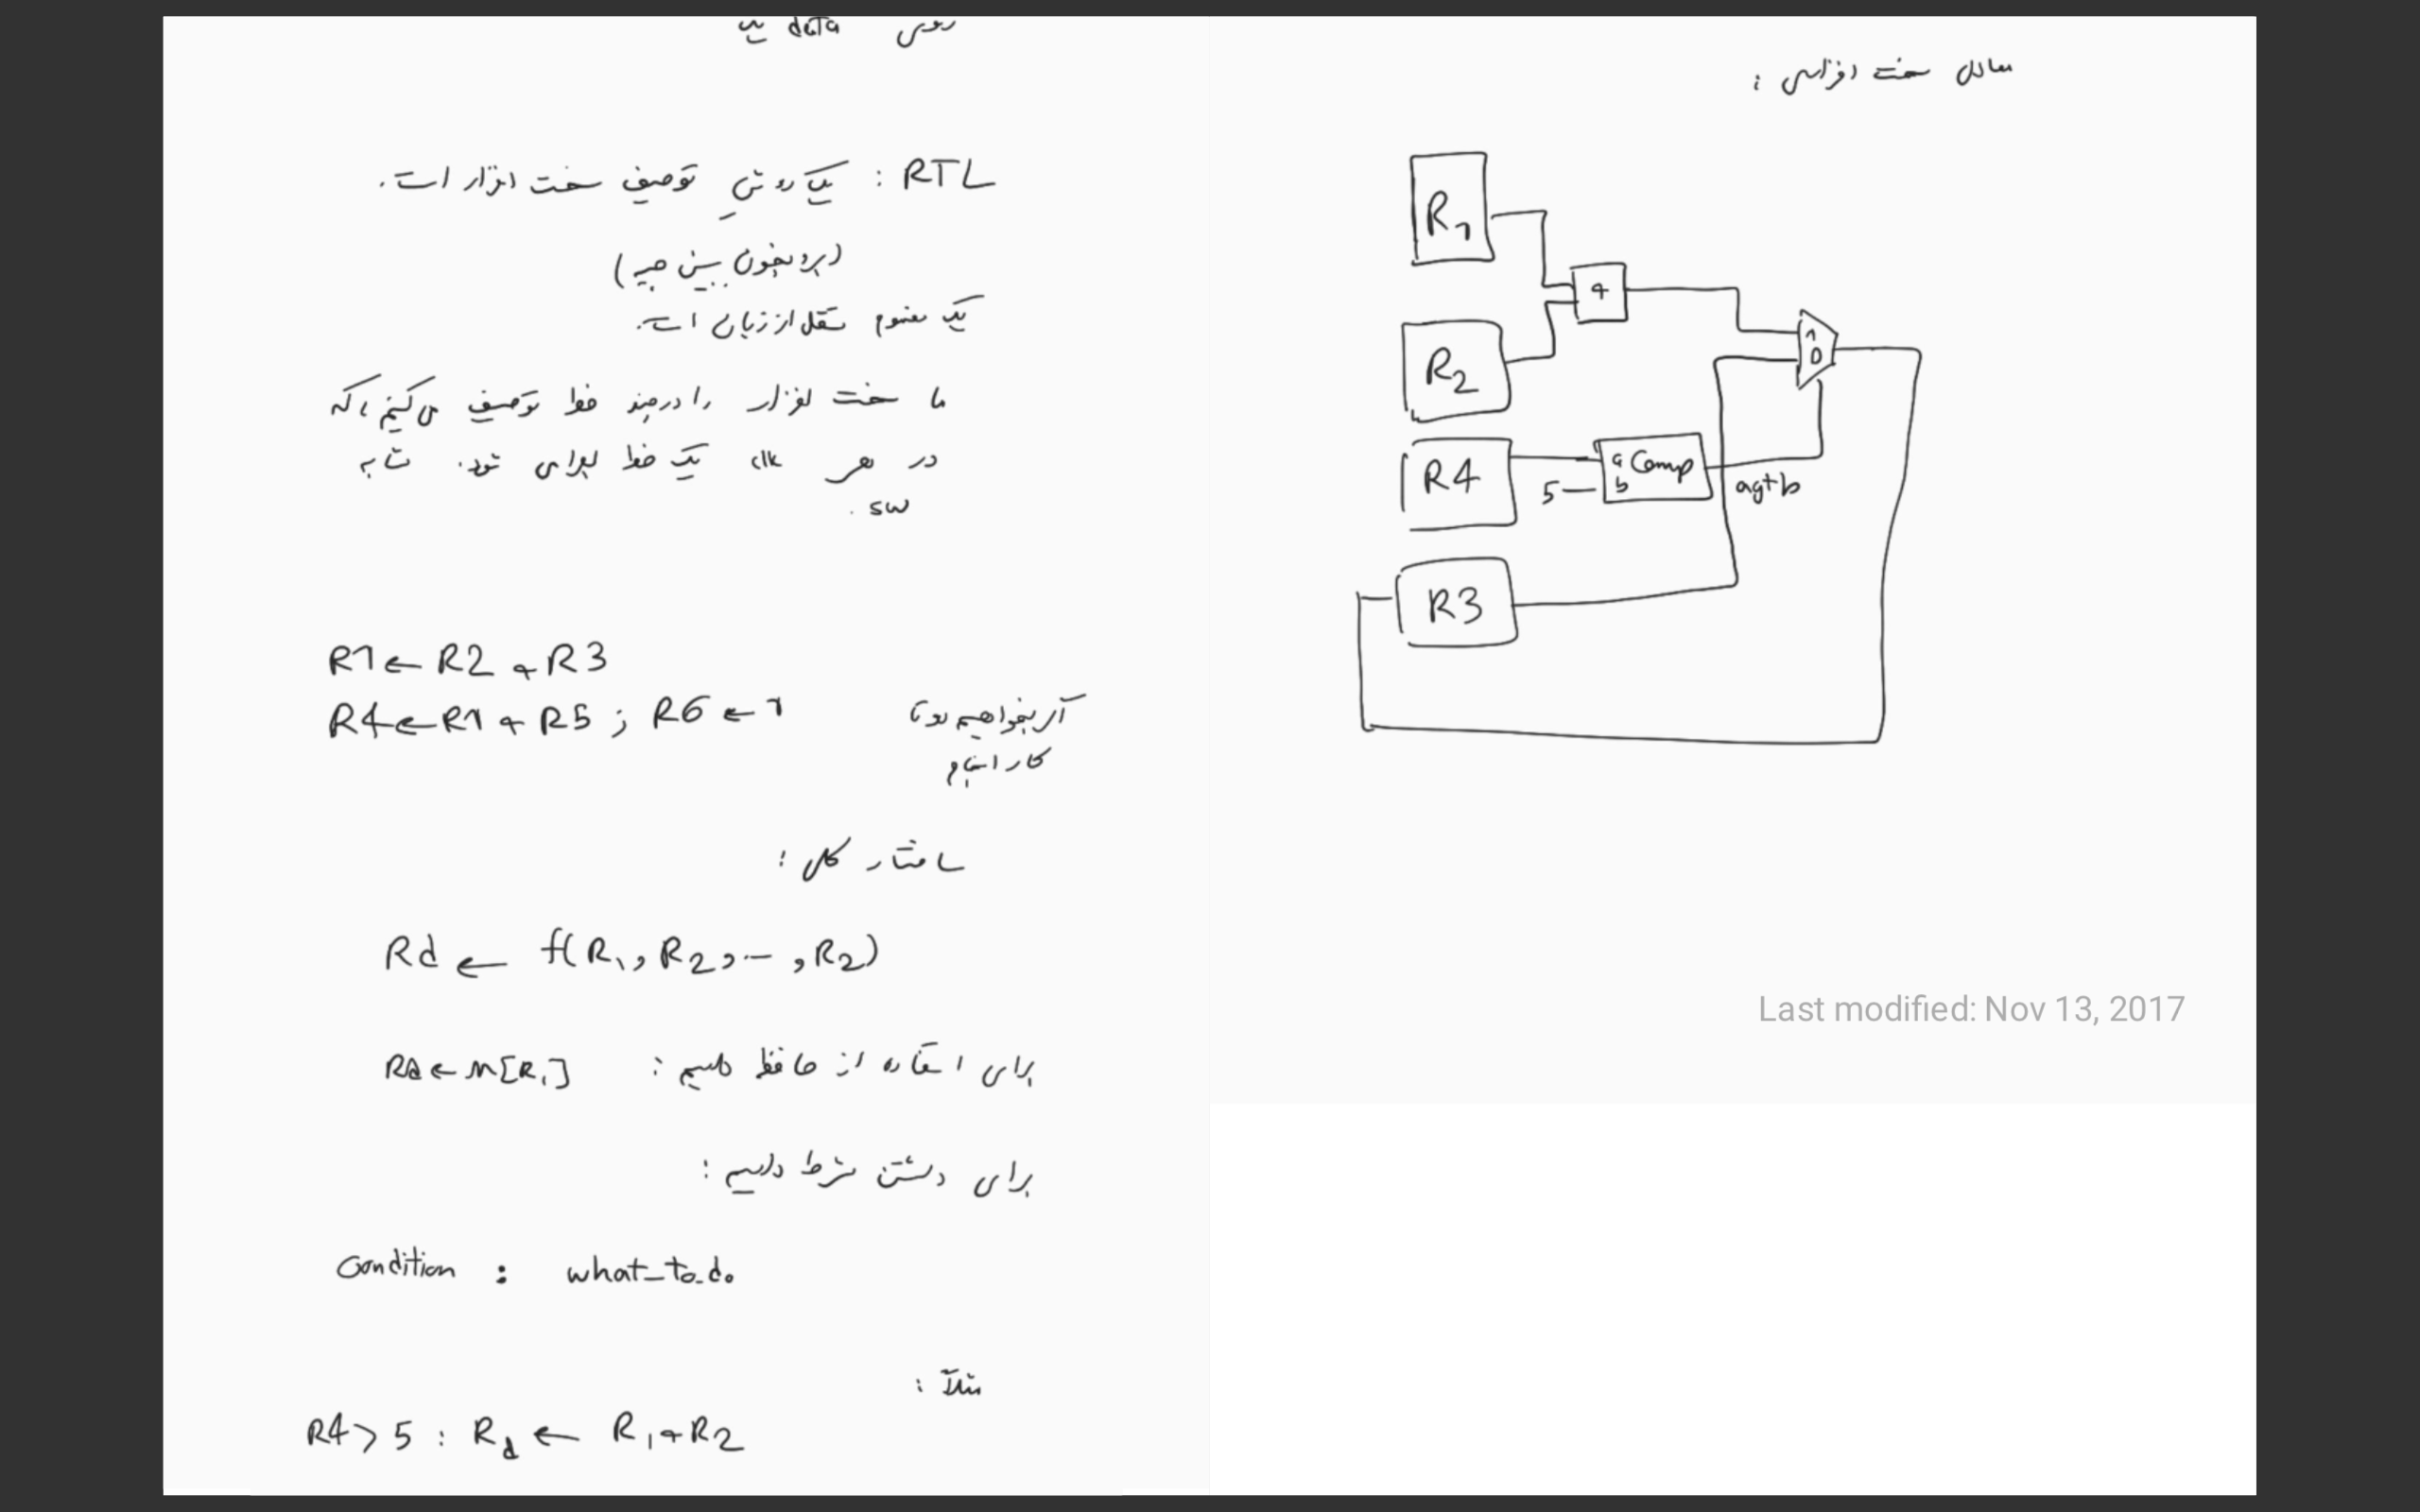 روی data یه
RTL : یک روش توصیف سخت افزار است.
(برو بخون ببین چیه)
یک مفهوم مستقل از زبان است.
ما سخت افزار را در چند خط توصیف می‌کنیم، که
در هر clk یک خط اجرا می شود. شبیه
sw .
R1 ← R2 + R3
R4 ← R1 + R5 ; R6 ← 1
اگر بخواهیم دو تا
کار انجام
ساختار کلی :
Rd ← f(R1, R2, ..., R2)
برای استفاده از حافظه داریم : Rd ← M[R1]
برای داشتن شرط داریم :
Condition : what_to_do
مثلاً :
R4 > 5 : Rd ← R1 + R2
معادل سخت افزاری :
R1
+
R2
1
0
R4
a Comp
5
b
agtb
R3
Last modified: Nov 13, 2017